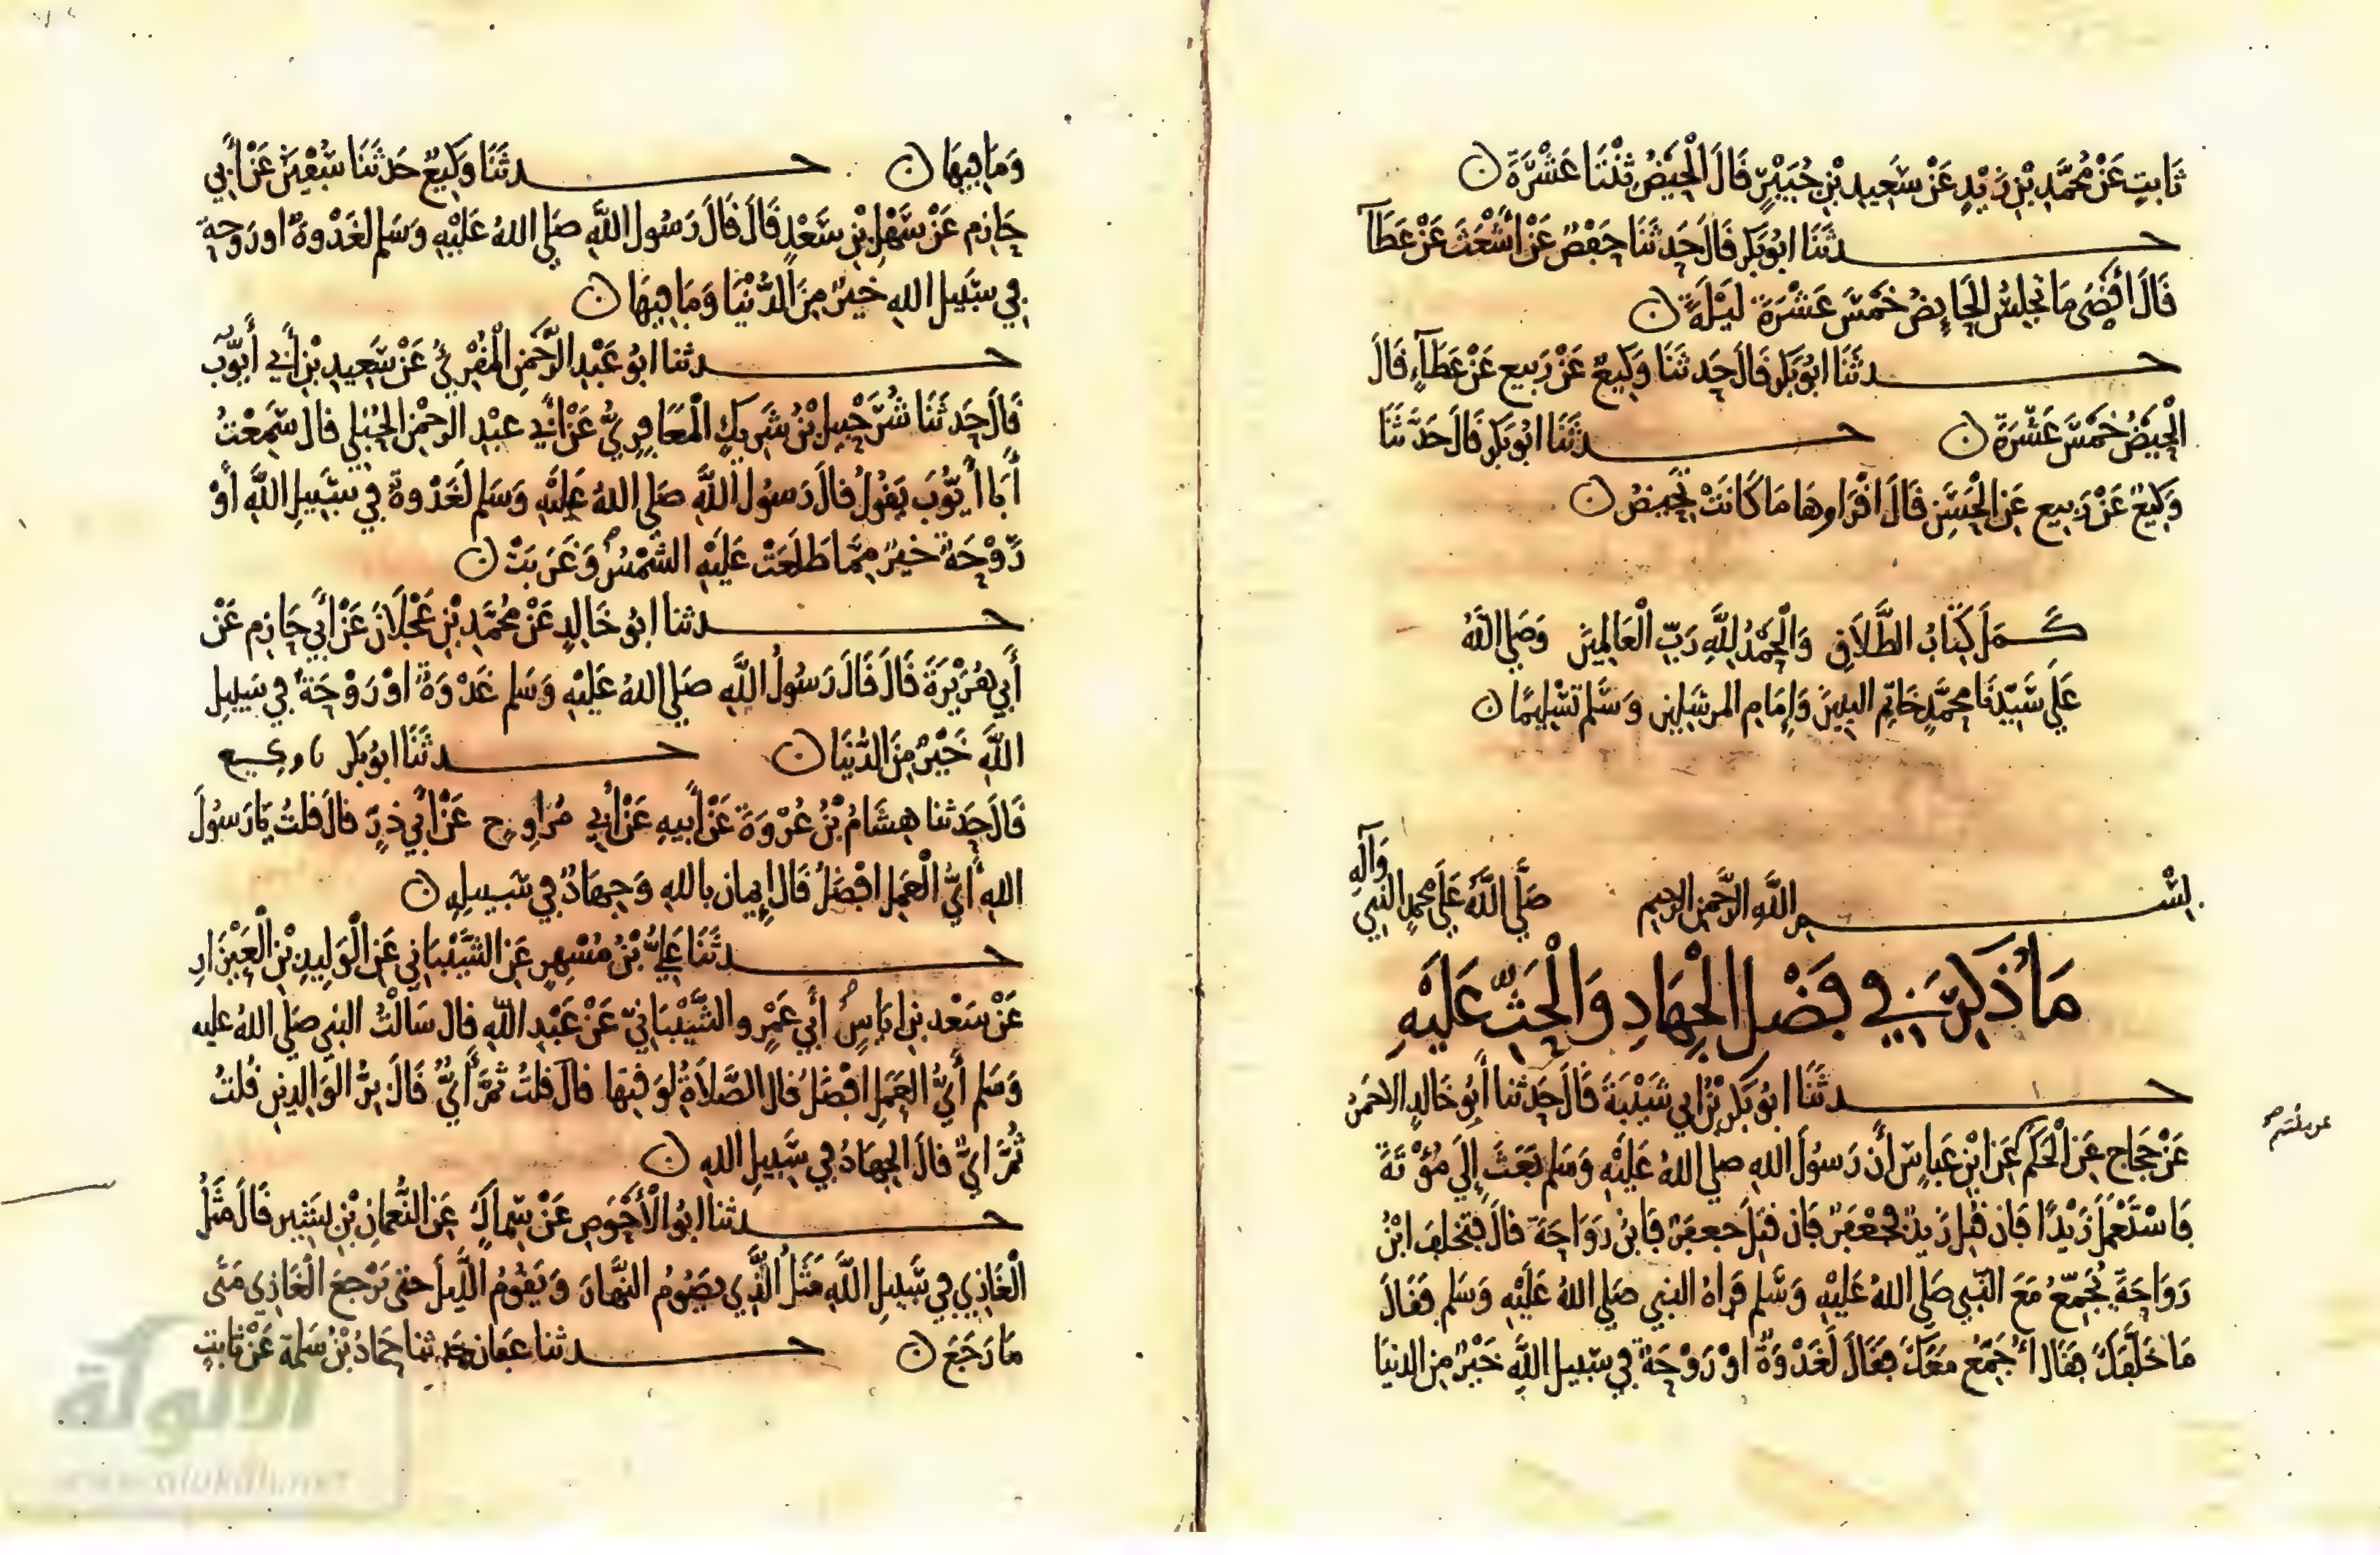 ثَابِتٍ عَنْ مُحَمَّدِ بْنِ زَيْدٍ عَنْ سَعِيدِ بْنِ جُبَيْرٍ قَالَ الْحَيْضُ ثِنْتَا عَشْرَةَ ن
حـدثَنَا ابُو بَكرٍ قَالَ حَدثَنَا حَفْصٌ عَنْ أَشْعَثَ عَنْ عَطَآ
قَالَ أَقْصَى مَا تَجلِسُ الحَايِضُ خَمْسَ عَشْرَةَ لَيْلَةً ن
حـدثَنَا ابُو بَكرٍ قَالَ حَدثَنَا وَكِيعٌ عَنْ رَبيعٍ عَنْ عَطَآءٍ قَالَ
الْحَيْضُ خَمْسَ عَشْرَةَ ن حـدثَنَا ابُو بَكرٍ قَالَ حَدَّثَنَا
وَكِيعٌ عَنْ رَبِيعٍ عَنِ الْحَسَنِ قَالَ اقْرَاوهَا مَا كَانَتْ تَحِيضُ ن
كَـمَلَ كِتَابُ الطَّلَاقِ وَالْحَمْدُ لِلَّهِ رَبِّ الْعَالَمِينَ وَصَلى اللهُ
عَلَى سَيِّدنَا مُحمَّدٍ خَاتِمِ النبيينَ وَإِمَامِ المرسَلِينَ وَسَلَّم تَسْلِيمًا ن
بسْـمِ اللَّهِ الرَّحْمنِ الرحِيمِ صَلَّى اللَّهُ عَلَى محمدٍ النَّبِيِّ وَآلِهِ
مَا ذُكِرَ فِي فَضْلِ الْجِهَادِ وَالْحَثِّ عَلَيْهِ
حـدثَنَا ابُو بَكرِ بْنُ أَبِي شَيْبَةَ قَالَ حَدثنا أَبُو خَالدٍ الاحْمَرُ
عَنْ حَجَاجٍ عَنِ الْحَكَمِ عَنِ ابْنِ عَباسٍ أَن رَسُولَ اللهِ صلى اللهُ عَلَيْهِ وَسَلم بَعَثَ إِلَى مُؤْتَةَ
فَاسْتَعْمَلَ زَيْدًا فَان قُتِلَ زَيدٌ فجَعْفَرٌ فَان قُتِلَ جعفَرٌ فَابنُ رَوَاحَةَ قالَ فتخلفَ ابْنُ
رَوَاحَةَ يُجَمِّعُ مَعَ النَّبِي صَلى اللهُ عَلَيْهِ وَسَّلم فَرَاهُ النبي صَلى اللهُ عَلَيْهِ وَسَلم فَقَالَ
مَا خَلَّفَكَ فقَالَ أُجَمِّعُ مَعَكَ فقَالَ لَغَدْوَةٌ اوْ رَوْحَةٌ فِي سَبيلِ اللَّهِ خَيْرٌ مِنَ الدنيَا
وَمَا فِيهَا ن حـدثَنَا وَكِيعٌ حَدثَنَا سُفْيَنُ عَنْ أَبِي
حَازِم عَنْ سَهْلِ بْنِ سَعْدٍ قَالَ قَالَ رَسُولُ اللَّهِ صَلى اللهُ عَلَيْهِ وَسَلم لغَدْوةٌ او رَوحةٌ
فِي سَبِيلِ اللهِ خَيرٌ مِنَ الدُّنْيَا وَمَا فِيهَا ن
حـدثنا ابُو عَبْدِ الرَّحْمَنِ الْمُقْرِئُ عَنْ سَعِيدِ بْنِ أَبِي أَيُّوبَ
قَالَ حَدثَنَا شُرَحْبِيلُ بْنُ شَرِيكٍ الْمَعَافِرِيُّ عَنْ أَبِي عبْدِ الرحْمنِ الحُبُلِي قال سَمِعْتُ
أَبَا أَيُّوبَ يَقُولُ قالَ رَسُولُ اللَّهِ صَلى اللهُ عَليْهِ وَسَلم لَغَدْوةٌ فِي سَبِيلِ اللَّهِ أَوْ
رَوْحَةٌ خَيرٌ مِمَّا طَلَعَتْ عَلَيْهِ الشمْسُ وَغَرَبَتْ ن
حـدثنا ابُو خَالِدٍ عَنْ مُحَمَّدِ بْنِ عَجْلَانَ عَنْ أَبِي حَازِم عَنْ
أَبِي هُرَيْرَةَ قَالَ قَالَ رَسُولُ اللَّهِ صَلى اللهُ عَلَيْهِ وَسَلم غَدْوَةٌ اوْ رَوْحَةٌ فِي سَبِيلِ
اللَّهِ خَيْرٌ مِنَ الدُّنيَا ن حـدثَنَا ابُو بَكر نا وكيع
قَالَ حَدثنا هِشَامُ بْنُ عُرْوَةَ عَنْ أَبِيهِ عَنْ أَبِي مُرَاوِحٍ عَنْ أَبِي ذَرٍّ قالَ قلتُ يَا رَسُولَ
اللهِ أَيُّ الْعَمَلِ افْضَلُ قَالَ إِيمان باللهِ وَجِهَادٌ فِي سَبيلِهِ ن
حـدثَنَا عَلِيُّ بْنُ مُسْهِرٍ عَنِ الشَّيْبَانِي عَنِ الْوَلِيدِ بْنِ الْعَيْزَارِ
عَنْ سَعْد بنِ ايَاسٍ أَبِي عَمْرٍو الشَّيْبَانِيِّ عَنْ عَبْدِ اللَّهِ قَال سَالْتُ النبي صَلى اللهُ عليه
وَسَلم أَيُّ العَمَلِ افْضَلُ قال الصَّلاَةُ لِوَقْتِهَا قالَ قلتُ ثُمَّ أَيُّ قَالَ بِرُّ الوَالِدينِ قُلتُ
ثُمَّ ايُّ قالَ الجِهَادُ فِي سَبِيلِ اللهِ ن
حـدثنا ابُو الْأَحْوَصِ عَنْ سِمَاكٍ عَنِ النُّعمَانِ بْنِ بَشِيرٍ قَالَ مَثَلُ
الْغَازِي فِي سَبِيلِ اللَّهِ مَثَلُ الَّذِي يَصُومُ النَّهارَ وَيَقُومُ اللَّيلَ حتى يَرْجعَ الْغَازِي مَتَى
مَا رَجَعَ ن حـدثنا عفان حَدثنا حَمادُ بْنُ سَلَمَةَ عَنْ ثَابتٍ
الألوكة
www.alukah.net